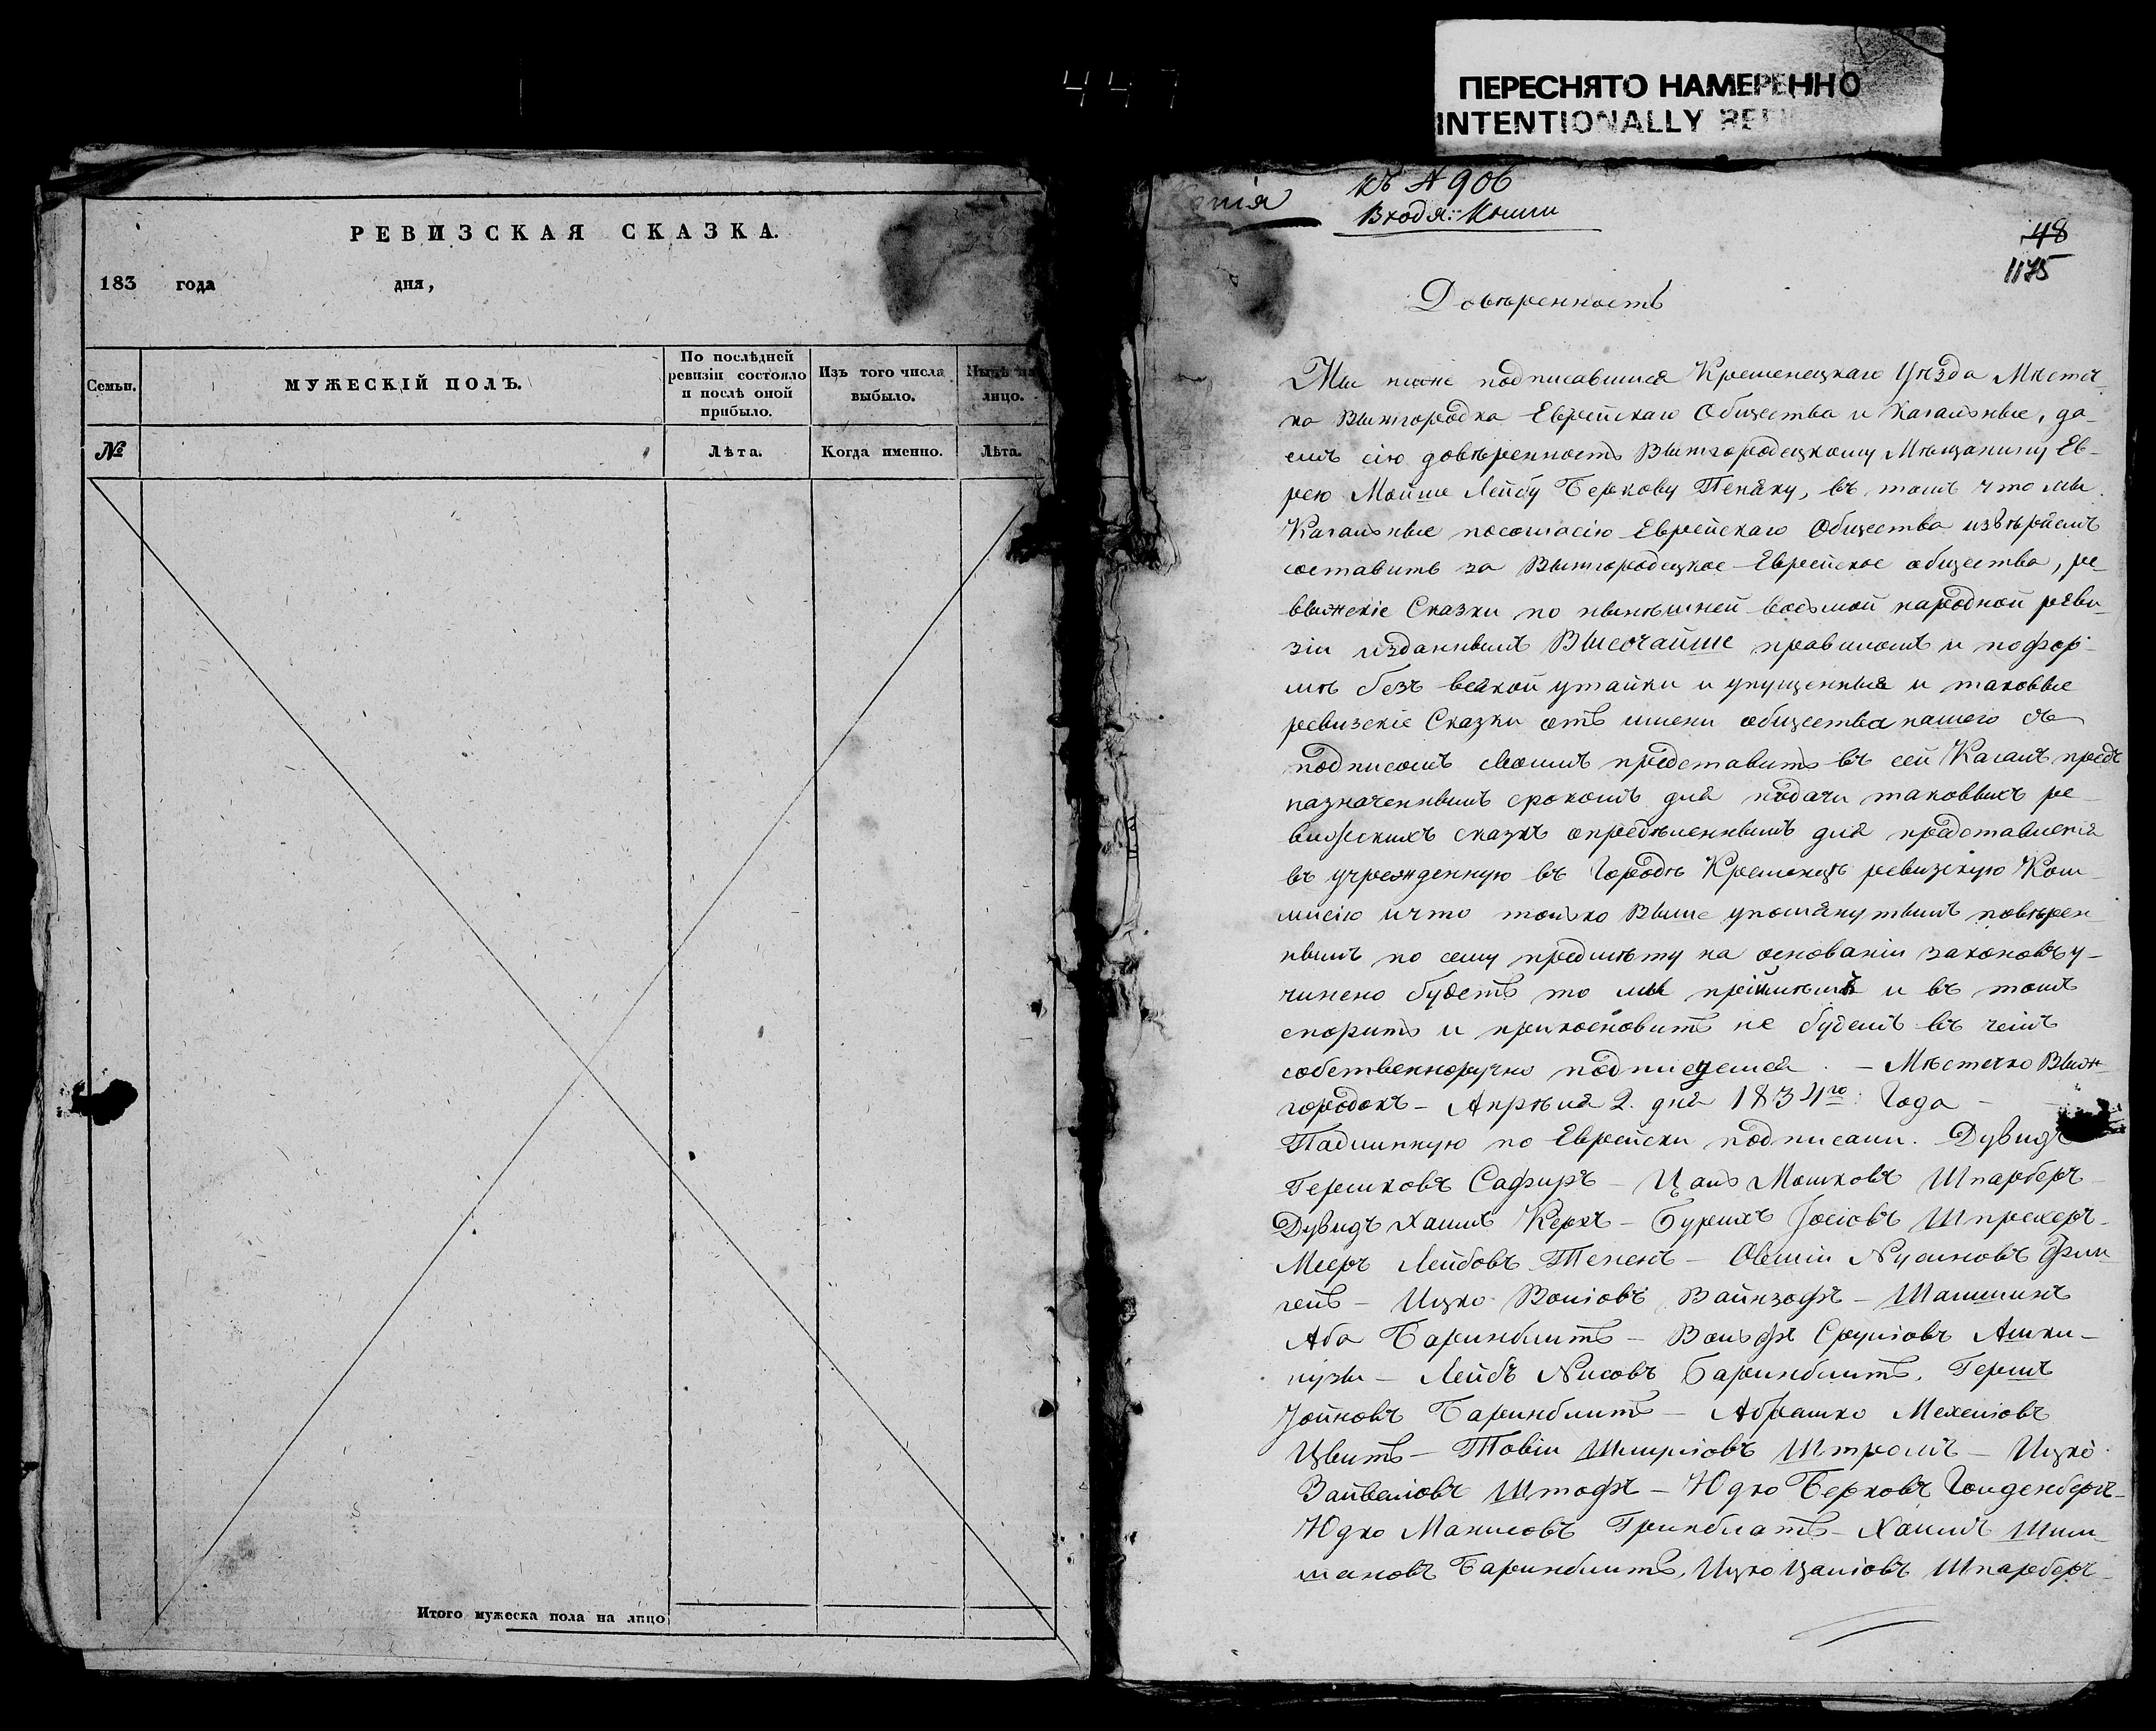 447
ПЕРЕСНЯТО НАМЕРЕННО
INTENTIONALLY
РЕВИЗСКАЯ СКАЗКА.
183 года дня,
Семьи.
МУЖЕСКІЙ ПОЛЪ.
По послѣдней ревизіи состояло и послѣ оной прибыло.
Изъ того числа выбыло.
Нынѣ на лицо.
№
Лѣта.
Когда именно.
Лѣта.
Итого мужеска пола на лицо
Копія
къ № 906
Входя: Книги
48
1175
Довѣренность
Мы ниже подписавшиеся Кременецкаго Уѣзда Мѣстеч-
ка Вижгородка Еврейскаго Общества и Кагальные, да-
емъ сію довѣренность Вижгородецкому Мѣщанину Ев-
рею Мойше Лейбу Беркову Пеняку, въ томъ что мы
Кагальные посогласію Еврейскаго Общества извѣряемъ
составить за Вижгородецкое Еврейское общество, ре-
вижскіе Сказки по нынѣшней восьмой народной реви-
зіи изданнымъ Высочайше правиломъ и пофор-
мѣ безъ всякой утайки и упущенныя и таковые
ревизскіе Сказки отъ имени общества нашего съ
подписомъ своимъ представить въ сей Кагалъ предъ
назначеннымъ срокомъ для подачи таковыхъ ре-
визскихъ сказкъ опредѣленнымъ для представленія
въ учрежденную въ Городѣ Кременцѣ ревизскую Ком-
мисію ичто только Выше упомянутымъ повѣрен-
нымъ по сему предмѣту на основаніи законовъ у-
чинено будетъ то мы пріймѣмъ и въ томъ
спорить и прикословить не будемъ въ чемъ
собственноручно подписуемся. — Мѣстечко Виж-
городокъ — Апрѣля 2. дня 1834го: Года —
Падлинную по Еврейски подписали. Дувидъ
Гершковъ Сафиръ — Цаль Мошковъ Шпарберъ —
Дувидъ Хаимъ Керхъ — Бурихъ Іосіовъ Шпрехеръ —
Мееръ Лейбовъ Тепенъ — Овшіи Нусиновъ Фин-
гелъ — Ицко Воліовъ Вайнзофъ — Шапшинъ
Аба Баринблитъ — Вольфъ Сруліовъ Ашки-
нузы — Лейбъ Нисовъ Баринблитъ, Гершъ
Іойновъ Баринблитъ — Абрашко Мехеліовъ
Цвитъ — Товіи Шмуліовъ Штромъ — Ицко
Зайвеліовъ Штофъ — Юдко Берковъ Голденбергъ —
Юдко Манисовъ Гринблатъ — Хаимъ Шим-
шановъ Баринблитъ, Ицко Цаліовъ Шпарберъ —